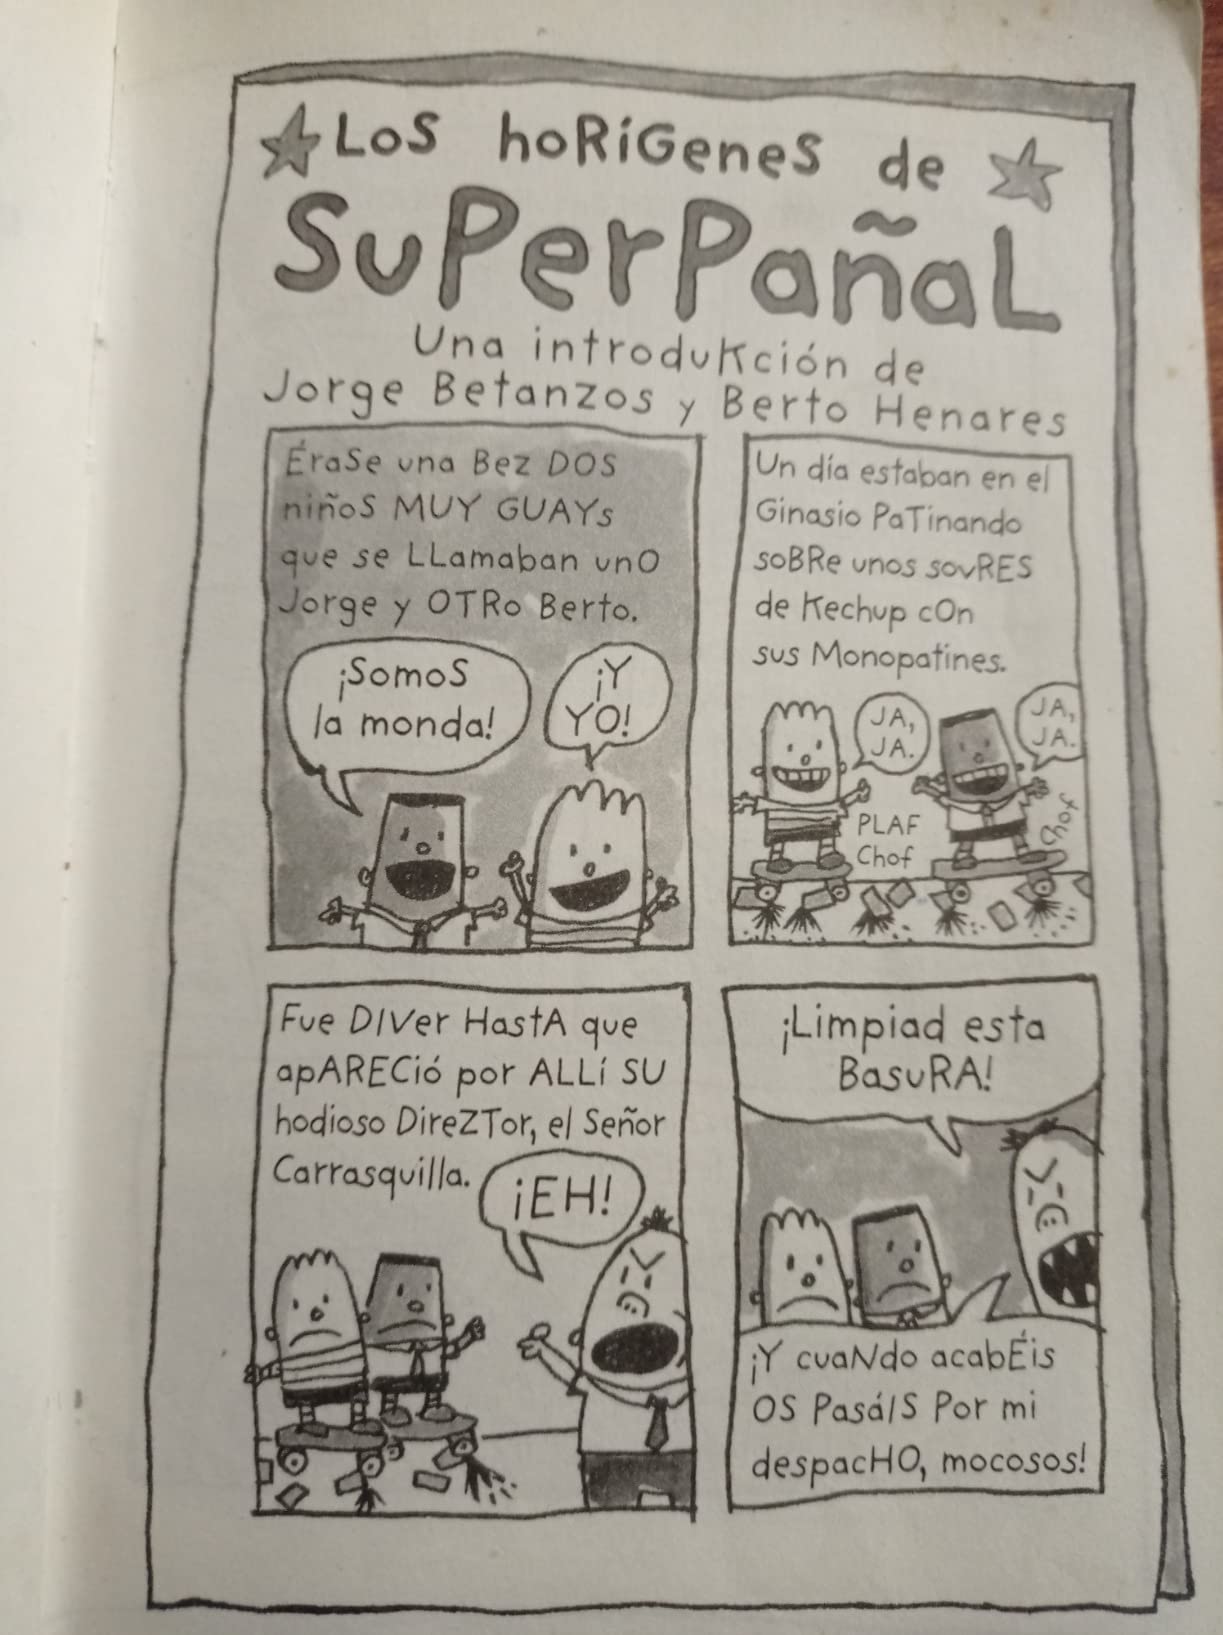 LoS hoRíGeneS de
SuPerPañaL
Una introduKción de
Jorge Betanzos y Berto Henares
ÉraSe una Bez DOS
niñoS MUY GUAYs
que se LLamaban unO
Jorge y OTRo Berto.
¡SomoS
la monda!
¡Y
YO!
Un día estaban en el
Ginasio PaTinando
soBRe unos sovRES
de Kechup cOn
sus Monopatines.
JA,
JA.
JA,
JA.
PLAF
Chof
Chof
Fue DIVer HastA que
apARECió por ALLí SU
hodioso DireZTor, el Señor
Carrasquilla.
¡EH!
¡Limpiad esta
BasuRA!
¡Y cuaNdo acabÉis
OS PasáIS Por mi
despacHO, mocosos!